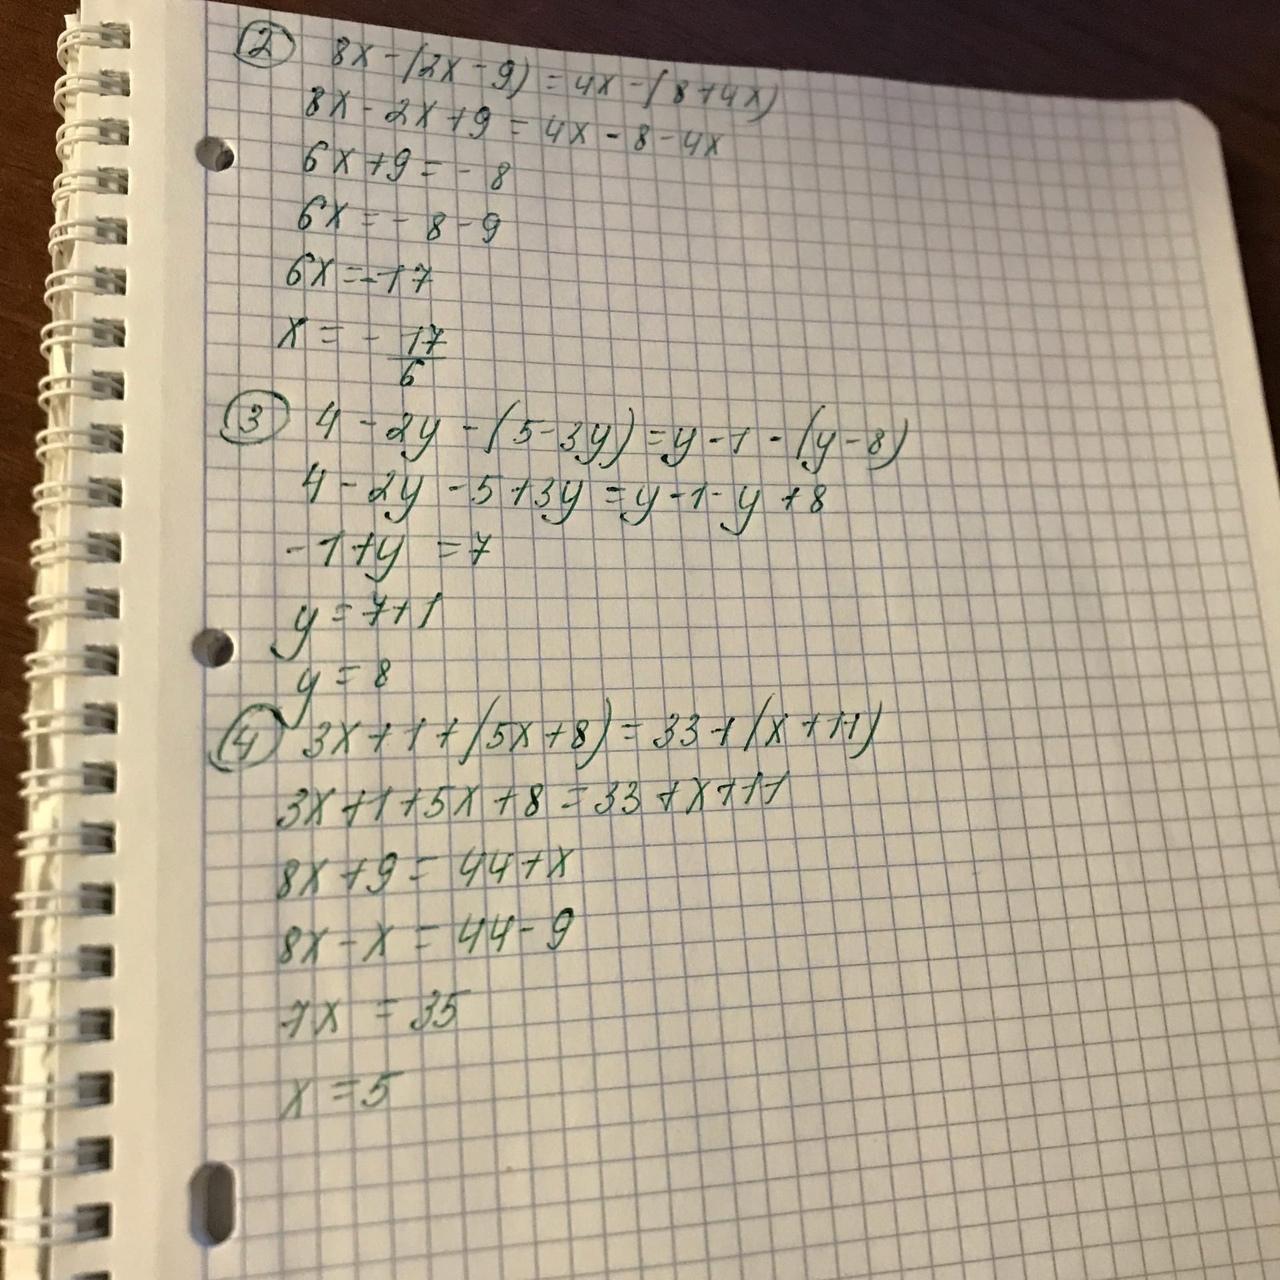 2 8x-(2x-9)=4x-(8+4x)
8x-2x+9=4x-8-4x
6x+9=-8
6x=-8-9
6x=-17
x=-17/6
3 4-2y-(5-3y)=y-1-(y-8)
4-2y-5+3y=y-1-y+8
-1+y=7
y=7+1
y=8
4 3x+1+(5x+8)=33+(x+11)
3x+1+5x+8=33+x+11
8x+9=44+x
8x-x=44-9
7x=35
x=5